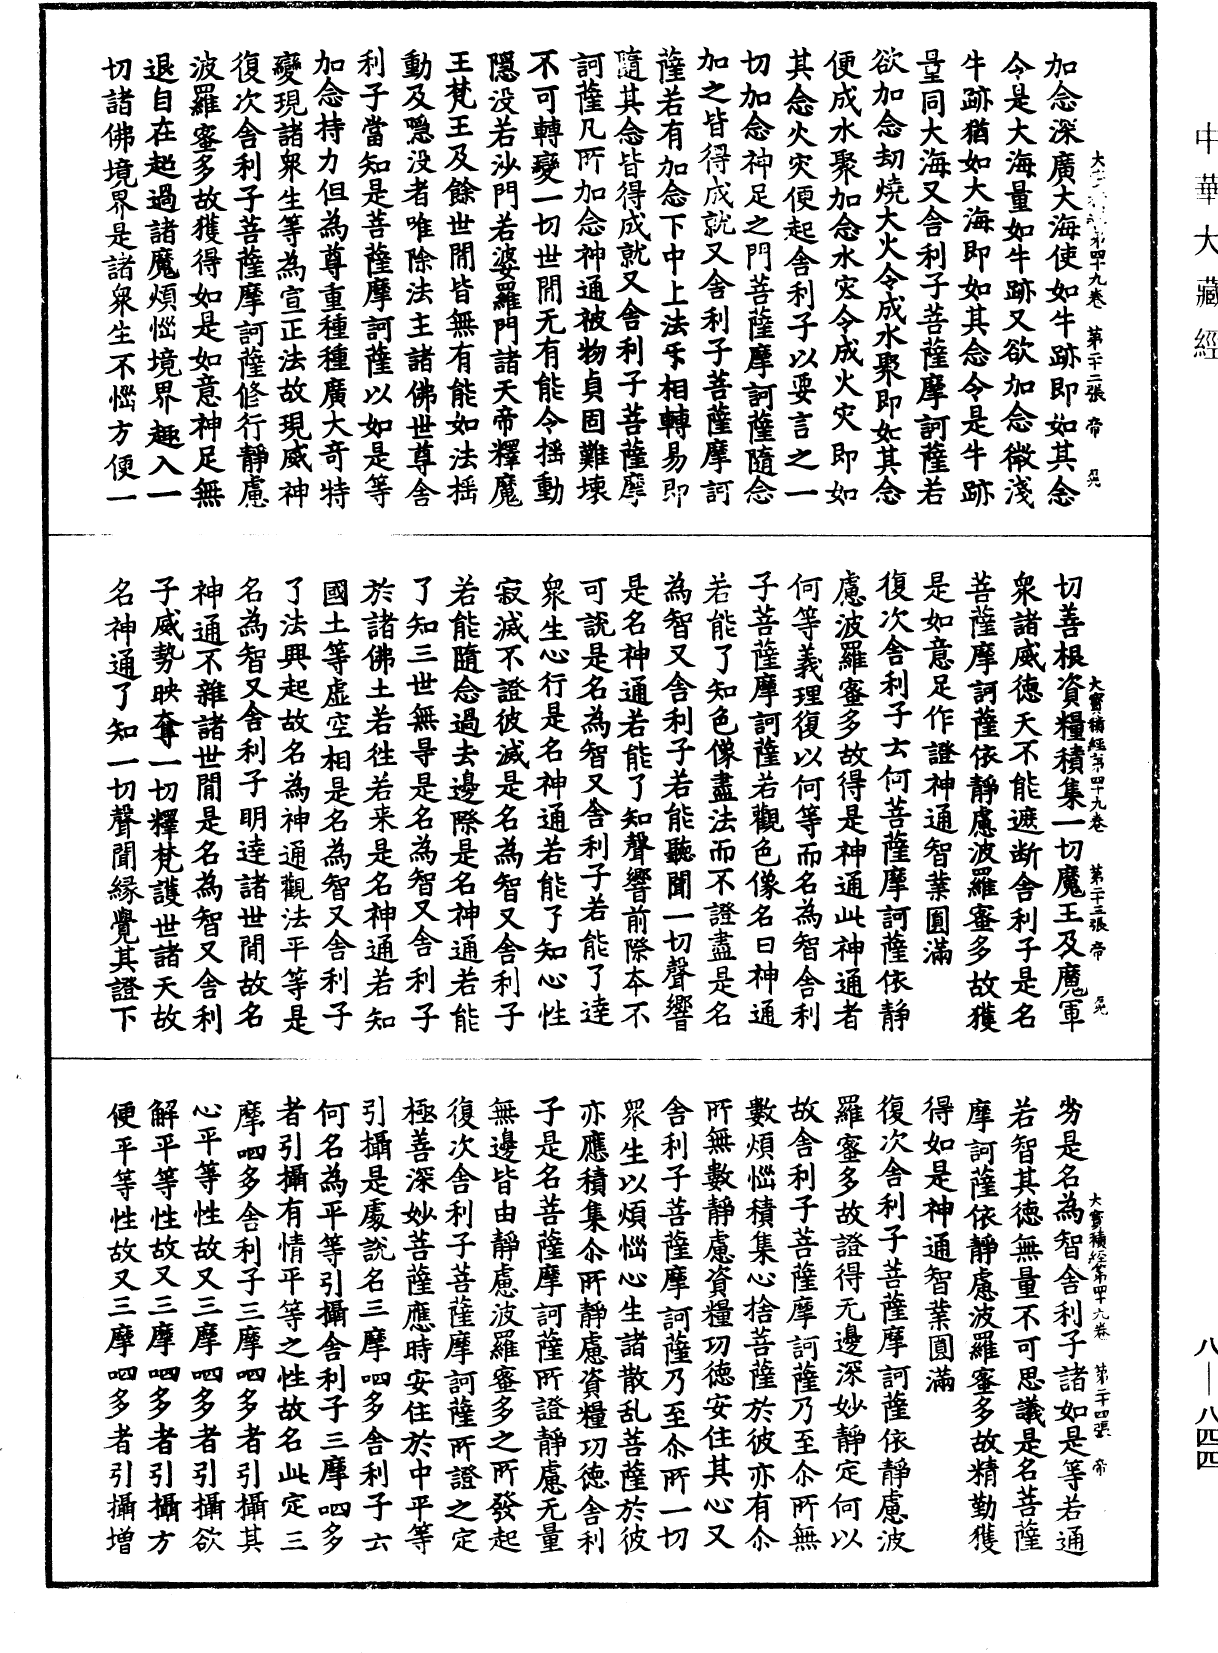 中華大藏經
加念深廣大海使如牛跡即如其念
令是大海量如牛跡又欲加念微淺
牛跡猶如大海即如其念令是牛跡
量同大海又舍利子菩薩摩訶薩若
欲加念劫燒大火令成水聚即如其念
便成水聚加念水灾令成火灾即如
其念火灾便起舍利子以要言之一
切加念神足之門菩薩摩訶薩隨念
加之皆得成就又舍利子菩薩摩訶
薩若有加念下中上法乎相轉易即
隨其念皆得成就又舍利子菩薩摩
訶薩凡所加念神通被物貞固難壞
不可轉變一切世間无有能令搖動
隱没若沙門若婆羅門諸天帝釋魔
王梵王及餘世間皆無有能如法搖
動及隱没者唯除法主諸佛世尊舍
利子當知是菩薩摩訶薩以如是等
加念持力但為尊重種種廣大奇特
變現諸衆生等為宣正法故現威神
復次舍利子菩薩摩訶薩修行靜慮
波羅蜜多故獲得如是如意神足無
退自在超過諸魔煩惱境界趣入一
切諸佛境界是諸衆生不惱方便一
第二十二張 帝
大寶積經第四十九卷 第二十三張 帝
切善根資糧積集一切魔王及魔軍
衆諸威德天不能遮断舍利子是名
菩薩摩訶薩依靜慮波羅蜜多故獲
是如意足作證神通智業圓滿
復次舍利子云何菩薩摩訶薩依靜
慮波羅蜜多故得是神通此神通者
何等義理復以何等而名為智舍利
子菩薩摩訶薩若觀色像名曰神通
若能了知色像盡法而不證盡是名
為智又舍利子若能聽聞一切聲響
是名神通若能了知聲響前際本不
可說是名為智又舍利子若能了達
衆生心行是名神通若能了知心性
寂滅不證彼滅是名為智又舍利子
若能隨念過去邊際是名神通若能
了知三世無㝵是名為智又舍利子
於諸佛土若往若来是名神通若知
國土等虚空相是名為智又舍利子
了法興起故名為神通觀法平等是
名為智又舍利子明達諸世間故名
神通不雜諸世間是名為智又舍利
子威勢映奪一切釋梵護世諸天故
名神通了知一切聲聞緣覺其證下
大寶積經第四十九卷 第二十四張 帝
劣是名為智舍利子諸如是等若通
若智其德無量不可思議是名菩薩
摩訶薩依靜慮波羅蜜多故精勤獲
得如是神通智業圓滿
復次舍利子菩薩摩訶薩依靜慮波
羅蜜多故證得无邊深妙靜定何以
故舍利子菩薩摩訶薩乃至尒所無
數煩惱積集心捨菩薩於彼亦有尒
所無數靜慮資糧功德安住其心又
舍利子菩薩摩訶薩乃至尒所一切
衆生以煩惱心生諸散乱菩薩於彼
亦應積集尒所靜慮資糧功德舍利
子是名菩薩摩訶薩所證靜慮无量
無邊皆由靜慮波羅蜜多之所發起
復次舍利子菩薩摩訶薩所證之定
極善深妙菩薩應時安住於中平等
引攝是處説名三摩呬多舍利子云
何名為平等引攝舍利子三摩呬多
者引攝有情平等之性故名此定三
摩呬多舍利子三摩呬多者引攝其
心平等性故又三摩呬多者引攝欲
解平等性故又三摩呬多者引攝方
便平等性故又三摩呬多者引攝增
八—八四四